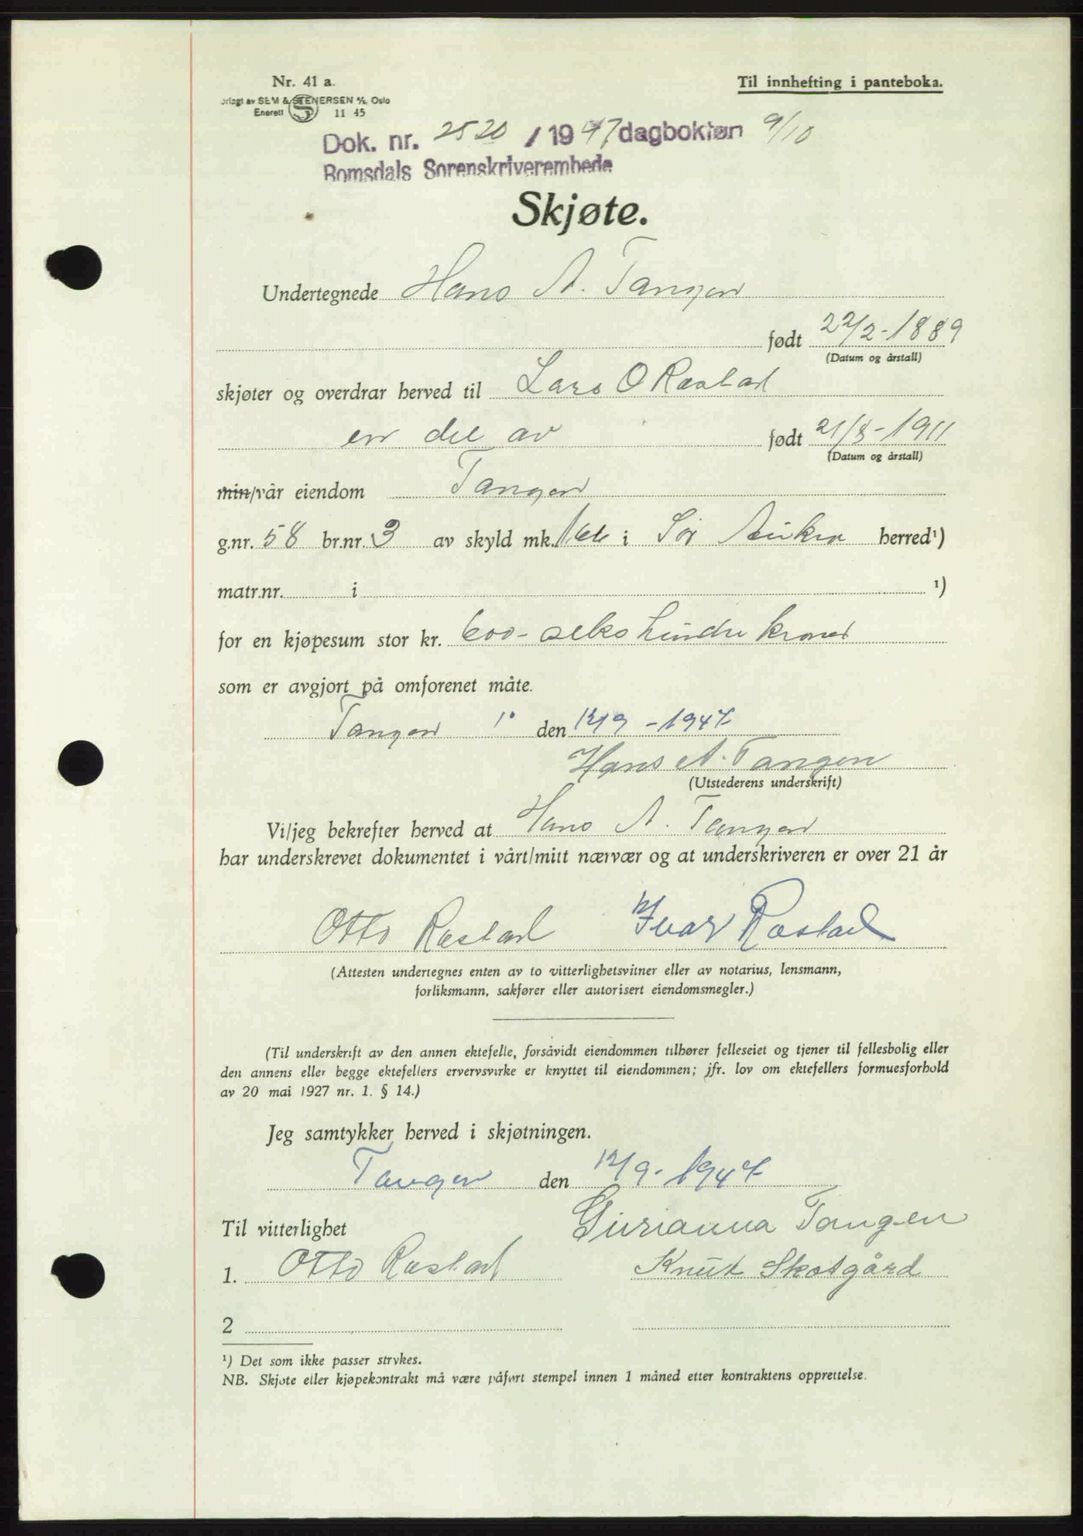 Nr. 41 a.
Til innhefting i panteboka.
SEM & STENERSEN A/S, Oslo
Enerett S 11 45
Dok. nr. 2520 / 1947 dagboken 9/10
Romsdals Sorenskriverembede
Skjøte.
Undertegnede Hans A. Tangen
født 22/2-1889
(Datum og årstall)
skjøter og overdrar herved til Lars O Rastad
en del av født 21/8-1911
(Datum og årstall)
min/vår eiendom Tangen
g.nr. 58 br.nr 3 av skyld mk. i Sør Aukra herred¹)
matr.nr. i ¹)
for en kjøpesum stor kr. 600- seks hundre kroner
som er avgjort på omforenet måte.
Tangen den 12/9-1947
Hans A. Tangen
(Utstederens underskrift)
Vi/jeg bekrefter herved at Hans A. Tangen
har underskrevet dokumentet i vårt/mitt nærvær og at underskriveren er over 21 år
Otto Rastad Ivar Rastad
(Attesten undertegnes enten av to vitterlighetsvitner eller av notarius, lensmann,
forliksmann, sakfører eller autorisert eiendomsmegler.)
(Til underskrift av den annen ektefelle, forsåvidt eiendommen tilhører felleseiet og tjener til fellesbolig eller
den annens eller begge ektefellers ervervsvirke er knyttet til eiendommen; jfr. lov om ektefellers formuesforhold
av 20 mai 1927 nr. 1. § 14.)
Jeg samtykker herved i skjøtningen.
Tangen den 12/9-1947
Til vitterlighet Gurianna Tangen
1. Otto Rastad Knut Skotgård
2
¹) Det som ikke passer strykes.
NB. Skjøte eller kjøpekontrakt må være påført stempel innen 1 måned etter kontraktens opprettelse.